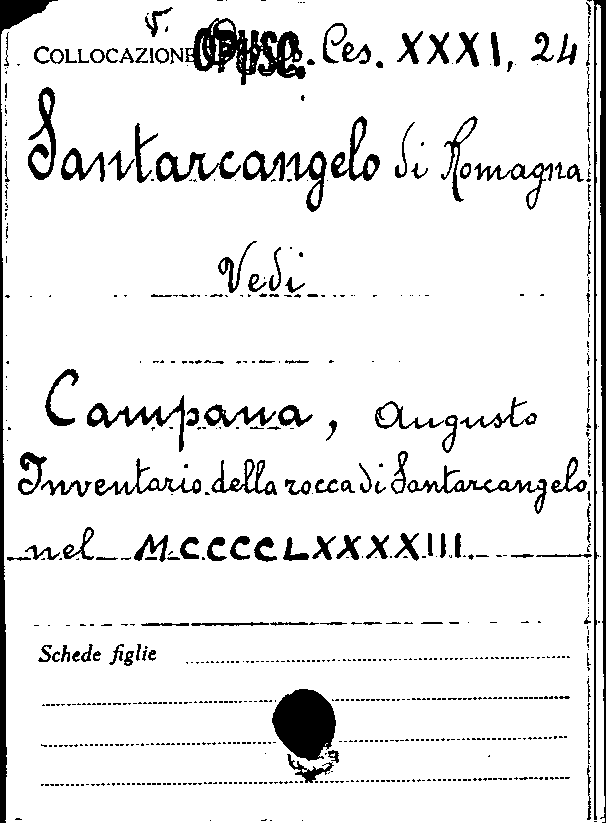 COLLOCAZIONE OPUSC. Ces. XXXI, 24
Santarcangelo di Romagna
Vedi
Campana, Augusto
Inventario della rocca di Santarcangelo
nel MCCCCLXXXXIII.
Schede figlie